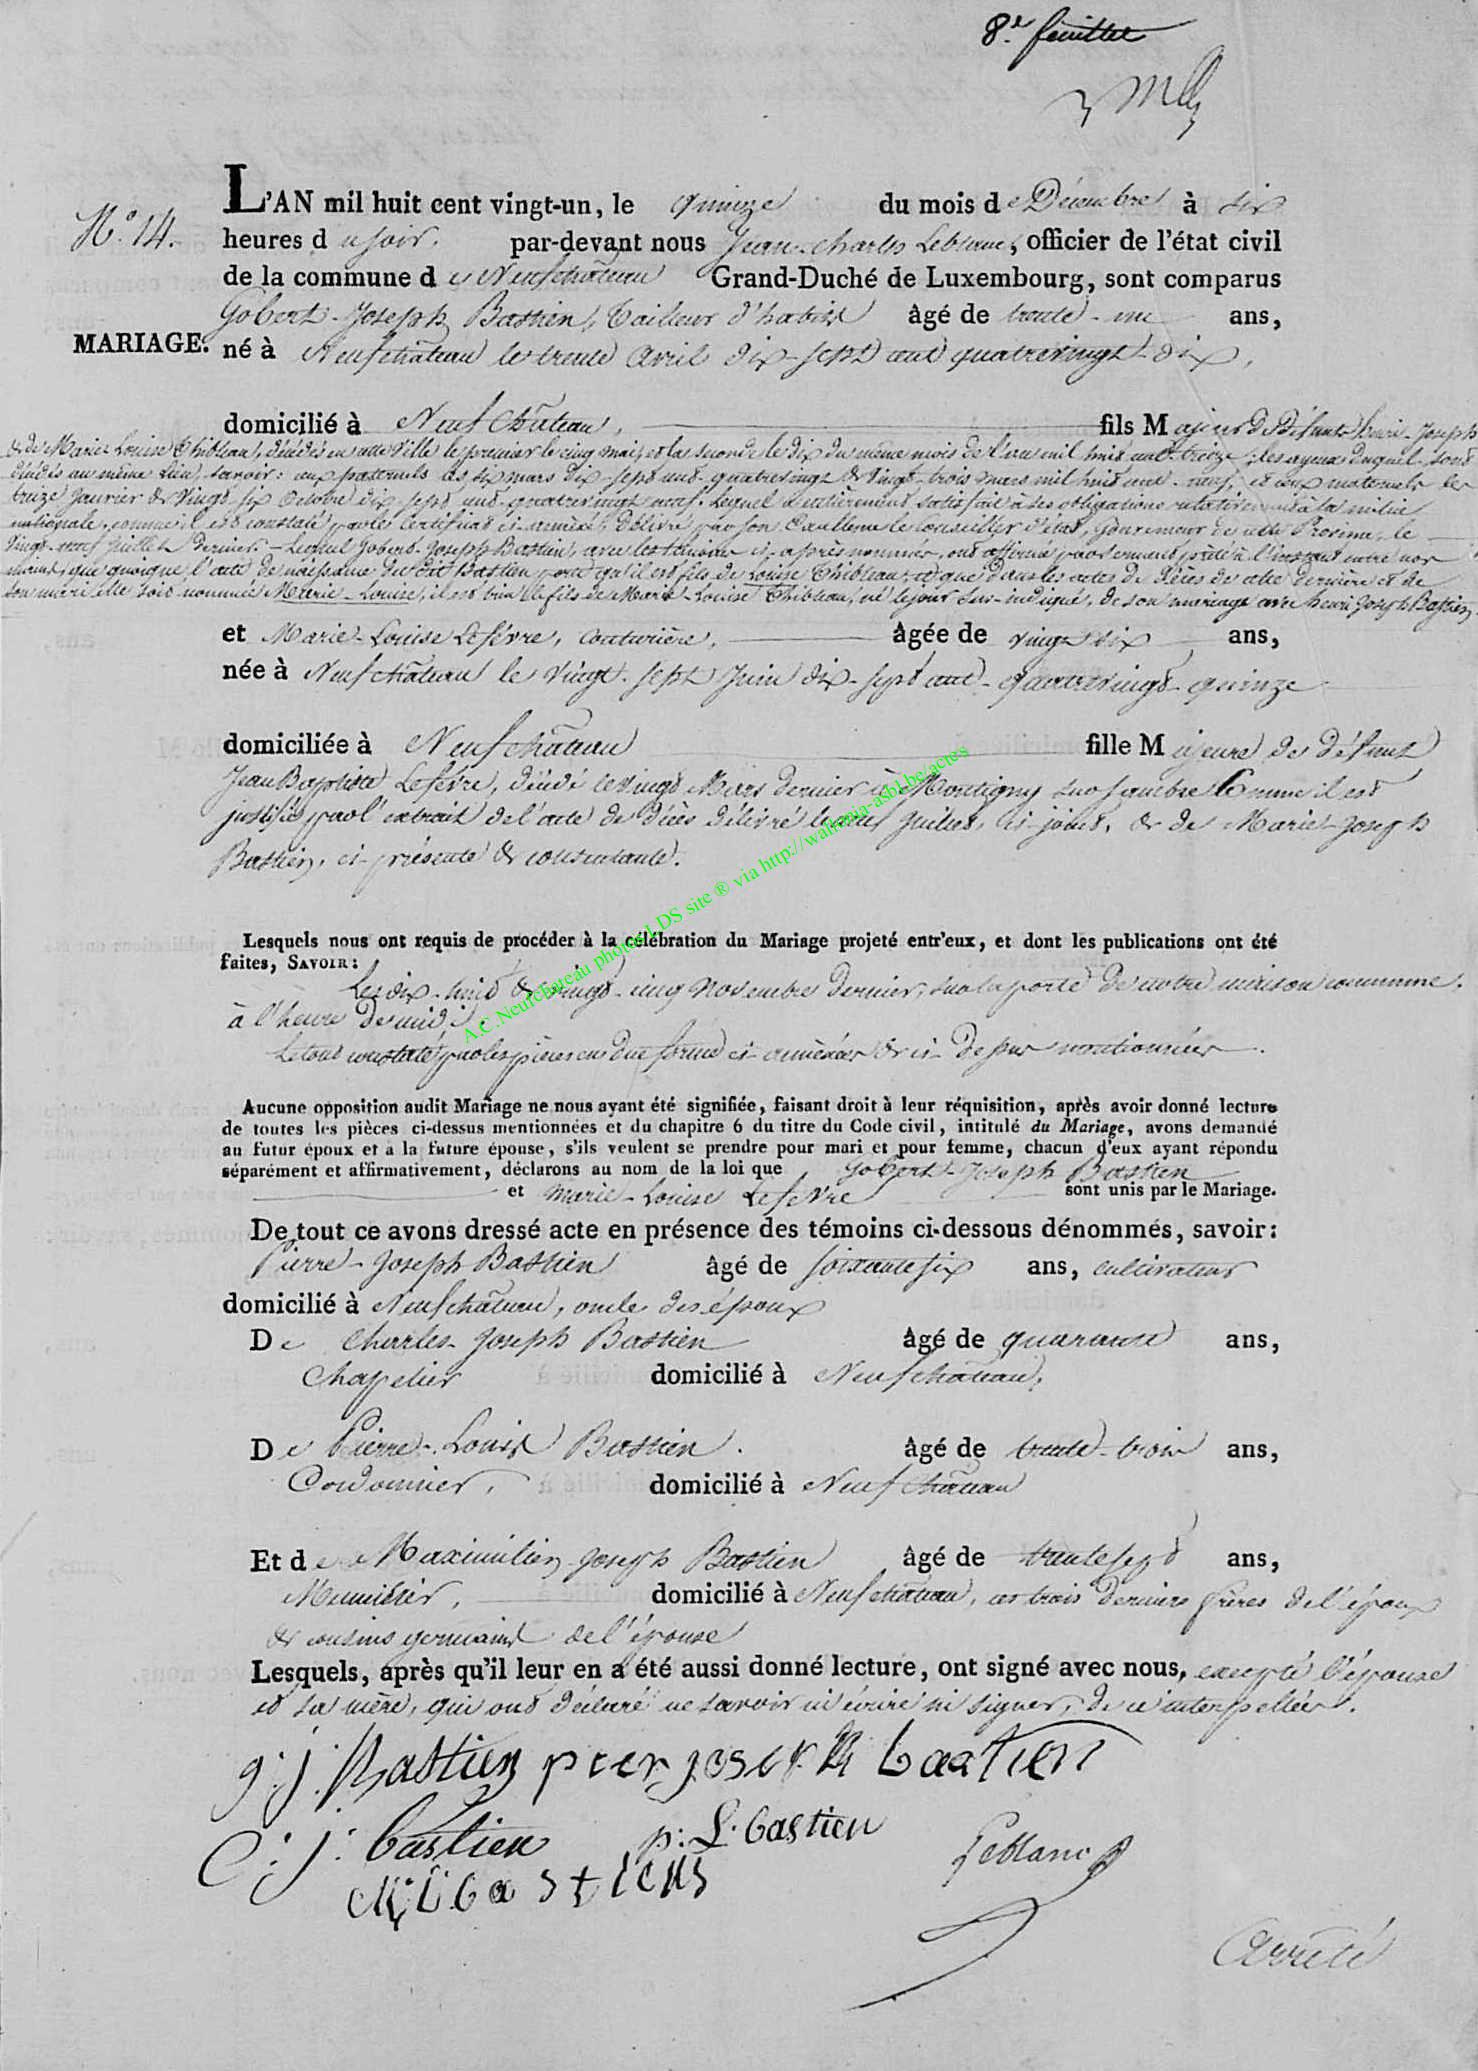 8.e feuillet
N.o 14.
MARIAGE.
L'AN mil huit cent vingt-un, le quinze du mois de Décembre à six
heures du soir, par-devant nous Jean-Charles Leblanc, officier de l'état civil
de la commune de Neufchâteau Grand-Duché de Luxembourg, sont comparus
Gobert-Joseph Bastien, Tailleur d'habits âgé de trente-un ans,
né à Neufchâteau le trente Avril dix-sept cent quatrevingt-dix,
domicilié à Neufchâteau, fils Majeur de Défunts henri-Joseph
& de Marie Louise Thibleau, décédés en cette Ville le premier le cinq mai, et la seconde le dix du même mois de l'an mil huit cent-treize; les ayeux duquel sont
décédés au même Lieu, savoir: ceux paternels les six mars dix-sept cent-quatrevingt & Vingt-trois mars mil huit cent-neuf, et ceux maternels les
treize Janvier & Vingt-six Octobre dix-sept cent-quatrevingt-neuf. Lequel a entièrement satisfait à ses obligations relativement à la milice
nationale, comme il est constaté par les certificats ci-annexés, délivré par son Excellence le conseiller d'état, Gouverneur de cette Province, le
Vingt-neuf Juillet dernier. - Lequel Gobert-Joseph Bastien, avec les témoins ci-après nommés, ont affirmé par serment prêté à l'instant entre nos
mains, que quoique l'acte de naissance du dit Bastien porte qu'il est fils de Louise Thibleau, et que dans les actes de Décès de cette dernière et de
son mère elle soit nommée Marie-Louise, il est bien le fils de Marie-Louise Thibleau, né le jour sus-indiqué, de son mariage avec henri Joseph Bastien.
et Marie-Louise Lefèvre, couturière, âgée de vingt six ans,
née à Neufchâteau le Vingt-sept Juin dix-sept cent-quatrevingt-quinze
domiciliée à Neufchâteau fille Majeure de défunt
Jean Baptiste Lefèvre, décédé le vingt Mars dernier à Montigny sur Sambre comme il est
justifié par l'extrait de l'acte de décès délivré le Juillet, ci-joint, & de Marie-Joseph
Bastien, ci-présente & consentante.
Lesquels nous ont requis de procéder à la célébration du Mariage projeté entr'eux, et dont les publications ont été
faites, SAVOIR:
Les dix-huit & vingt-cinq Novembre dernier, sur la porte de notre maison commune,
à l'heure de midi.
Le tout constaté par les pièces en due forme ci-annexées & ci-dessus mentionnées.
Aucune opposition audit Mariage ne nous ayant été signifiée, faisant droit à leur réquisition, après avoir donné lecture
de toutes les pièces ci-dessus mentionnées et du chapitre 6 du titre du Code civil, intitulé du Mariage, avons demandé
au futur époux et à la future épouse, s'ils veulent se prendre pour mari et pour femme, chacun d'eux ayant répondu
séparément et affirmativement, déclarons au nom de la loi que Gobert-Joseph Bastien
et marie-Louise Lefèvre sont unis par le Mariage.
De tout ce avons dressé acte en présence des témoins ci-dessous dénommés, savoir:
Pierre-Joseph Bastien âgé de soixante six ans, cultivateur
domicilié à Neufchâteau, oncle des époux
De Charles-Joseph Bastien âgé de quarante ans,
Chapelier domicilié à Neufchâteau,
De Pierre-Louis Bastien. âgé de trente-trois ans,
Cordonnier, domicilié à Neufchâteau
Et de Maximilien-Joseph Bastien âgé de trente sept ans,
Menuisier, domicilié à Neufchâteau, ces trois derniers frères de l'époux
& cousins germains de l'épouse
Lesquels, après qu'il leur en a été aussi donné lecture, ont signé avec nous, excepté l'épouse
et sa mère, qui ont déclaré ne savoir ni écrire ni signer, de ce interpellées.
g: j: Bastien pier joseph bastien
C: j: bastien p: L. bastien
Leblanc
Arrêté
A.C.Neufchateau photos LDS site ® via http://wallonia-asbl.be/actes